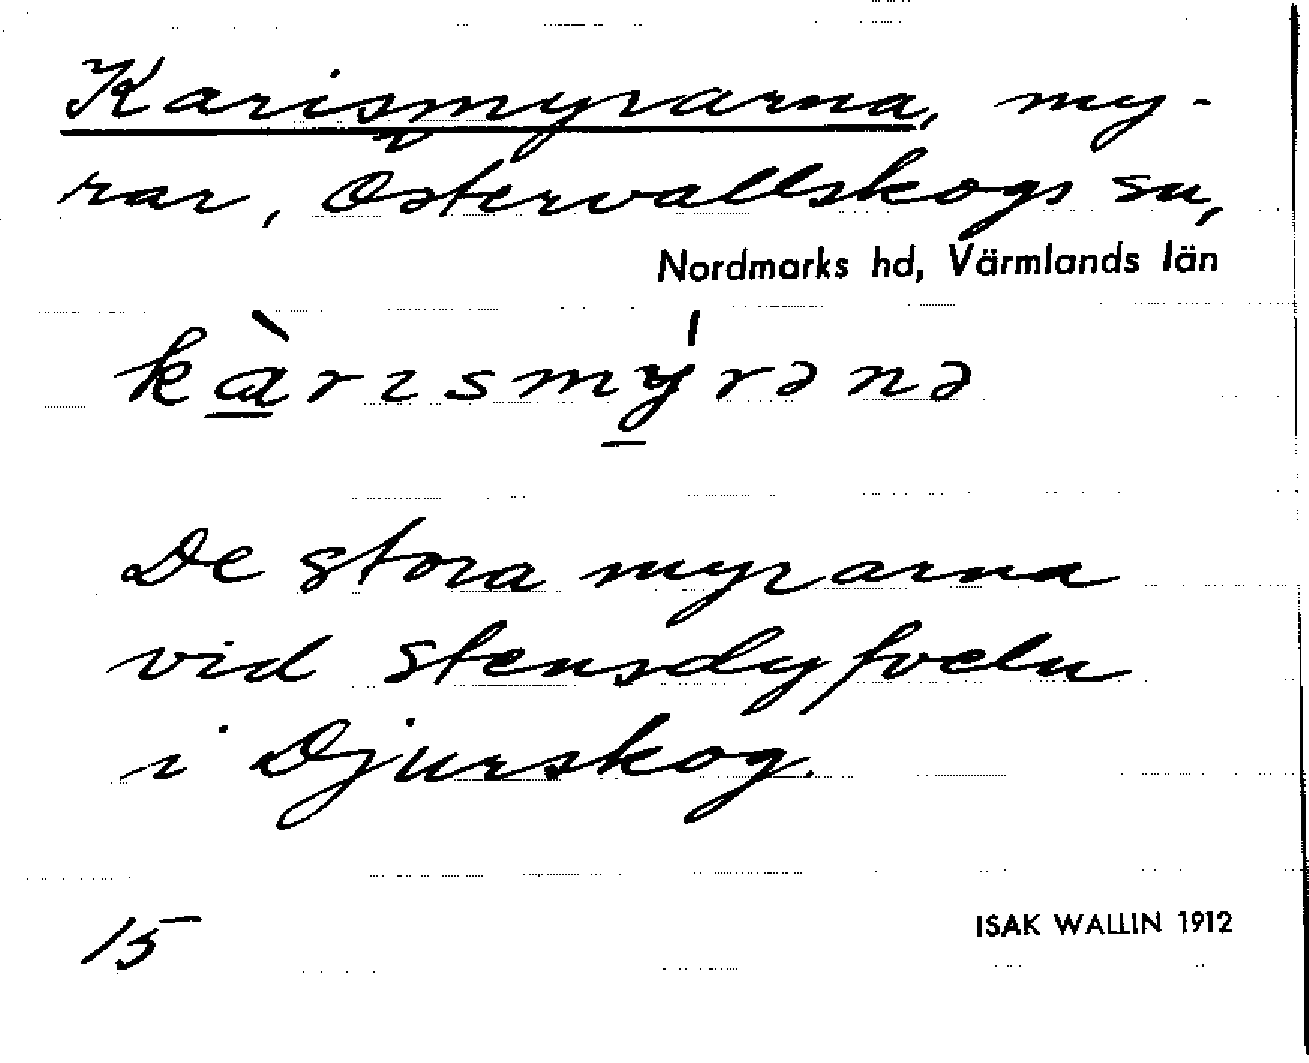 Karismyrarna, my-
rar, Östervallskogs sn,
Nordmarks hd, Värmlands län
kàrɩsmýrənə
De stora myrarna
vid Stensdyfveln
i Djurskog.
15
ISAK WALLIN 1912